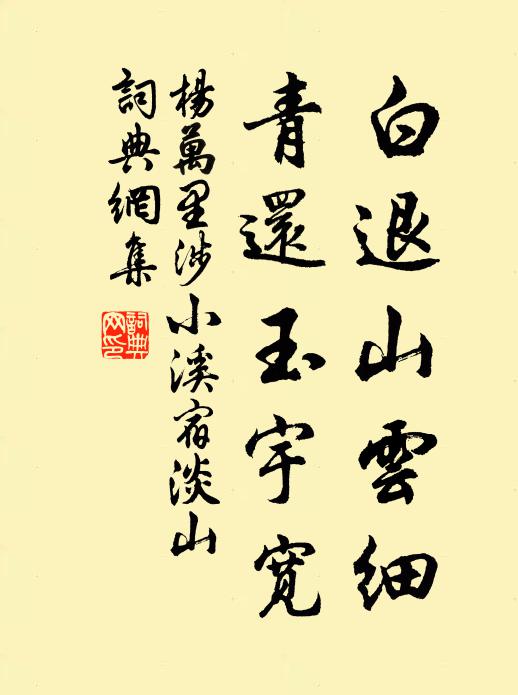 白退山雲細
青還玉宇寬
楊萬里涉小溪宿淡山
詞典網集
詞典
网印